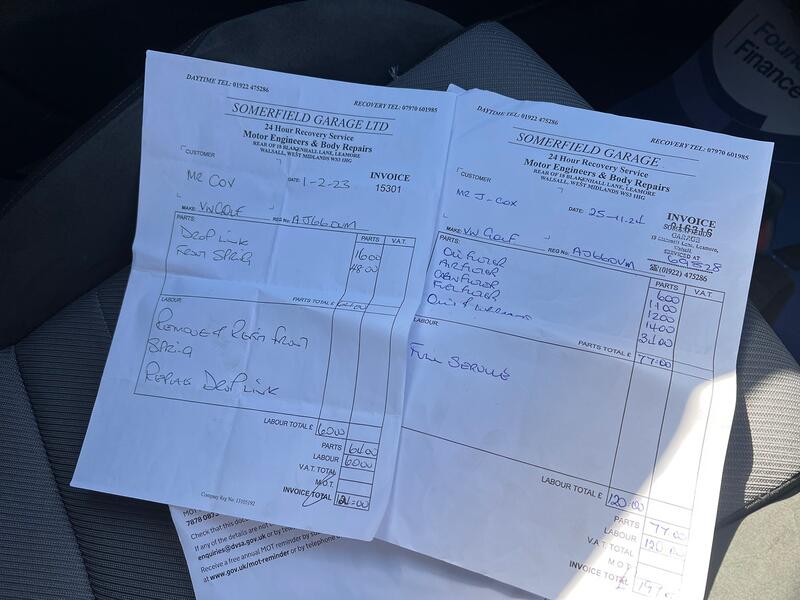 DAYTIME TEL: 01922 475286
RECOVERY TEL: 07970 601985
SOMERFIELD GARAGE LTD
24 Hour Recovery Service
Motor Engineers & Body Repairs
REAR OF 18 BLAKENHALL LANE, LEAMORE
WALSALL, WEST MIDLANDS WS3 1HG
CUSTOMER
INVOICE
MR COX
DATE: 1-2-23
15301
MAKE: VW GOLF
REG No: AJ66OVM
PARTS:
PARTS
V.A.T.
DROP LINK
16 00
FRONT SPRING
48 00
PARTS TOTAL £
64 00
LABOUR:
REMOVE & REFIT FRONT
SPRING
REPLACE DROP LINK
LABOUR TOTAL £
60 00
PARTS
64 00
LABOUR
60 00
V.A.T. TOTAL
M.O.T.
INVOICE TOTAL
124 = 00
DAYTIME TEL: 01922 475286
RECOVERY TEL: 07970 601985
SOMERFIELD GARAGE
24 Hour Recovery Service
Motor Engineers & Body Repairs
REAR OF 18 BLAKENHALL LANE, LEAMORE
WALSALL, WEST MIDLANDS WS3 1HG
CUSTOMER
MR J - COX
DATE: 25-11-24
INVOICE
GARAGE
SERVICED AT
69528
☎(01922) 475286
MAKE: VW GOLF
REG No: AJ66OVM
PARTS:
PARTS
V.A.T.
OIL FILTER
6 00
AIR FILTER
14 00
12 00
FUEL FILTER
14 00
31 00
PARTS TOTAL £
77 00
LABOUR
FULL SERVICE
LABOUR TOTAL £
120 00
PARTS
77 00
LABOUR
120 00
V.A.T. TOTAL
M.O.T.
INVOICE TOTAL
197
MOT
7878 087
Check that this doc
If any of the details are not
enquiries@dvsa.gov.uk or by tele
Receive a free annual MOT reminder by su
at www.gov.uk/mot-reminder or by telephone o
Finance